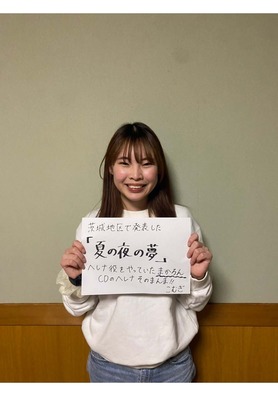 茨城地区で発表した
「夏の夜の夢」
ヘレナ役をやっていたまかろん
CDのヘレナそのまんま!!
こむぎ